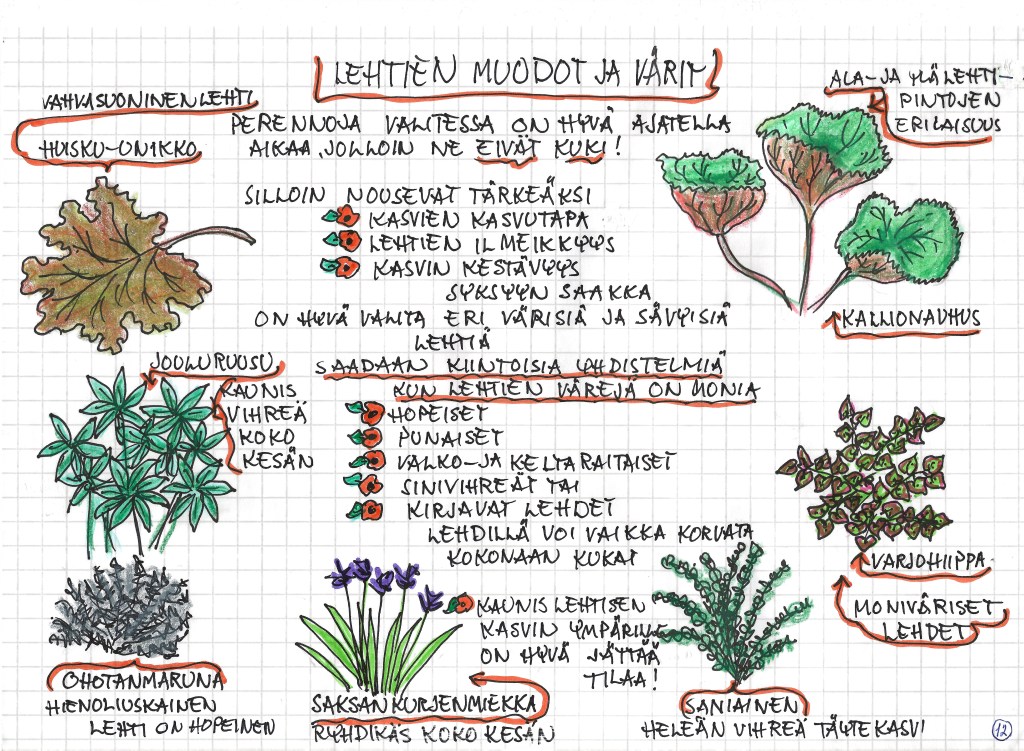 LEHTIEN MUODOT JA VÄRIT
VAHVASUONINEN LEHTI
HUISKU-UNIKKO
ALA- JA YLÄLEHTI-
PINTOJEN
ERILAISUUS
PERENNOJA VALITESSA ON HYVÄ AJATELLA
AIKAA, JOLLOIN NE EIVÄT KUKI!
SILLOIN NOUSEVAT TÄRKEÄKSI
KASVIEN KASVUTAPA
LEHTIEN ILMEIKKYYS
KASVIN KESTÄVYYS
SYKSYYN SAAKKA
ON HYVÄ VALITA ERI VÄRISIÄ JA SÄVYISIÄ
LEHTIÄ
KALLIONAUHUS
SAADAAN KIINTOISIA YHDISTELMIÄ
KUN LEHTIEN VÄREJÄ ON MONIA
JOULURUUSU
KAUNIS
VIHREÄ
KOKO
KESÄN
HOPEISET
PUNAISET
VALKO- JA KELTARAITAISET
SINIVIHREÄT TAI
KIRJAVAT LEHDET
LEHDILLÄ VOI VAIKKA KORVATA
KOKONAAN KUKAT
VARJOHIIPPA
MONIVÄRISET
LEHDET
KAUNISLEHTISEN
KASVIN YMPÄRILLE
ON HYVÄ JÄTTÄÄ
TILAA!
OHOTANMARUNA
HIENOLIUSKAINEN
LEHTI ON HOPEINEN
SAKSANKURJENMIEKKA
RYHDIKÄS KOKO KESÄN
SANIAINEN
HELEÄN VIHREÄ TÄYTEKASVI
12